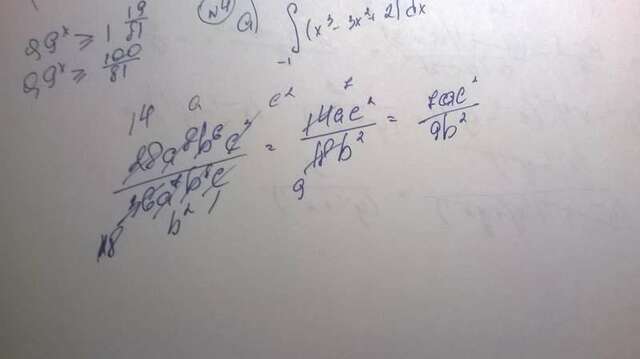 0,9ˣ ≥ 1 19/81
0,9ˣ ≥ 100/81
№4 a) ∫₋₁ (x³ - 3x² + 2) dx
14 a c²
28a⁸b⁶c³ / 36a⁷b⁸c = 14ac² / 18b² = 7ac² / 9b²
18 b² 1 9